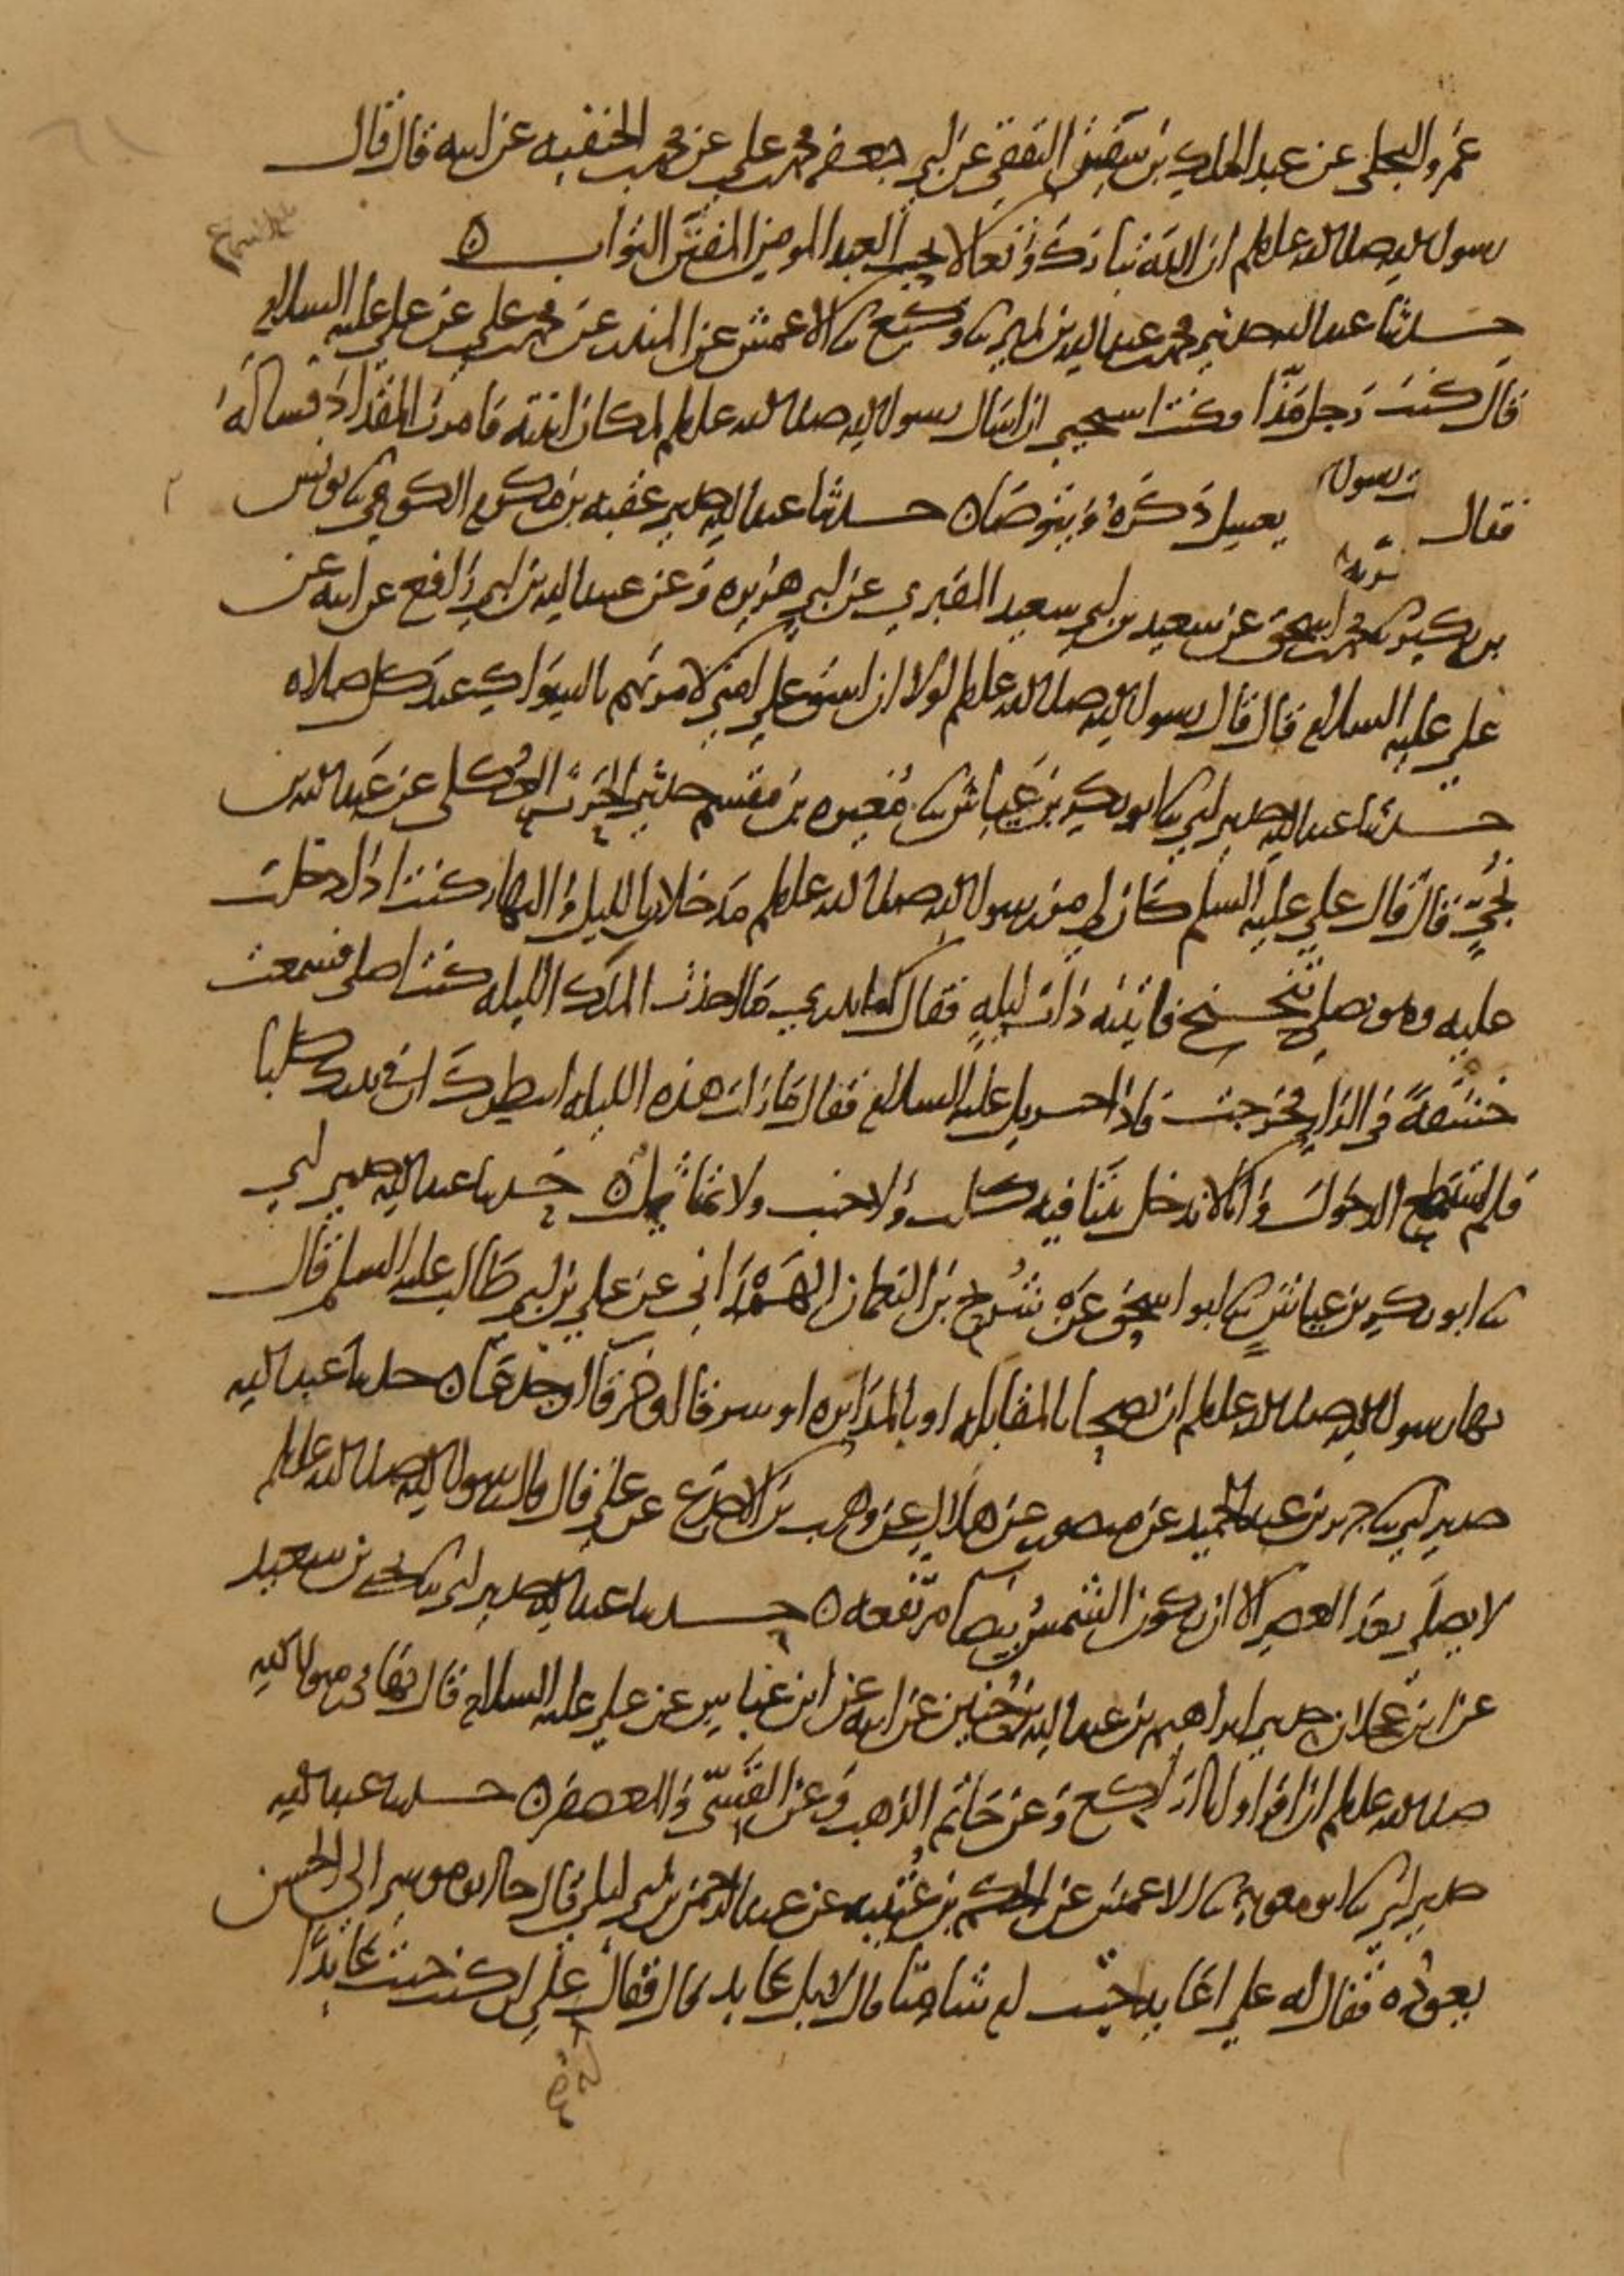 عمرو البجلي عن عبد الملك بن سفين الثقفي عن ابي جعفر محمد بن علي عن محمد بن الحنفيه عن ابيه قال قال
رسول الله صلى الله عليه وسلم ان الله تبارك وتعالا يحب العبد المومن المفتن التواب ن
حدثنا عبد الله حدثني محمد بن عبد الله بن نمير ثنا وكيع ثنا الاعمش عن المنذر عن محمد بن علي عن علي عليه السلام
قال كنت رجل مذا وكنت استحيي ان اسال رسول الله صلى الله عليه وسلم لمكان ابنته فامرت المقداد فساله
فقال يغسل ذكره ويتوضا ن حدثنا عبد الله حدثني عقبه بن مكرم الكوفي ثنا يونس
بن بكير ثنا محمد بن اسحق عن سعيد بن ابي سعيد المقبري عن ابي هريره وعن عبيد الله بن ابي رافع عن ابيه عن
علي عليه السلام قال قال رسول الله صلى الله عليه وسلم لولا ان اشق على امتي لامرتهم بالسواك عند كل صلاه
حدثنا عبد الله حدثني ابي ثنا ابو بكر بن عياش ثنا مغيره بن مقسم حدثني الحرث العكلي عن عبد الله بن
نجي قال قال علي عليه السلم كان لي من رسول الله صلى الله عليه وسلم مدخلان بالليل والنهار كنت اذا دخلت
عليه وهو يصلي تنحنح فاتيته ذات ليله فقال اتدري ما احدث الملك الليله كنت اصلي فسمعت
خشفة في الدار فخرجت فاذا جبريل عليه السلام فقال ما زلت هذه الليله انتظرك ان في بيتك كلبا
فلم استطع الدخول وانا لا ندخل بيتا فيه كلب ولا جنب ولا تمثال ن حدثنا عبد الله حدثني ابي
ثنا ابو بكر بن عياش ثنا ابو اسحق عن شريح بن النعمان الهمداني عن علي بن ابي طالب عليه السلم قال
نها رسول الله صلى الله عليه وسلم ان يضحا بالمقابله او بالمدابره او شرقا او خرقا او جدعا ن حدثنا عبد الله
حدثني ابي ثنا جرير بن عبد الحميد عن منصور عن هلال عن وهب بن الاجدع عن علي قال قال رسول الله صلى الله عليه وسلم
لا يصلى بعد العصر الا ان يكون الشمس بيضا مرتفعه ن حدثنا عبد الله حدثني ابي ثنا يحيى بن سعيد
عن ابن عجلان حدثني ابراهيم بن عبد الله بن حنين عن ابيه عن ابن عباس عن علي عليه السلام قال نهاني رسول الله
صلى الله عليه وسلم ان اقرا وانا راكع وعن خاتم الذهب وعن القسي والمعصفر ن حدثنا عبد الله
حدثني ابي ثنا ابو معويه ثنا الاعمش عن الحكم بن عتيبه عن عبد الرحمن بن ابي ليلى قال جا ابو موسى الى الحسن
يعوده فقال له علي اعايدا جيت ام شامتا قال لا بل عايدا قال فقال علي ان كنت جيت عايدا